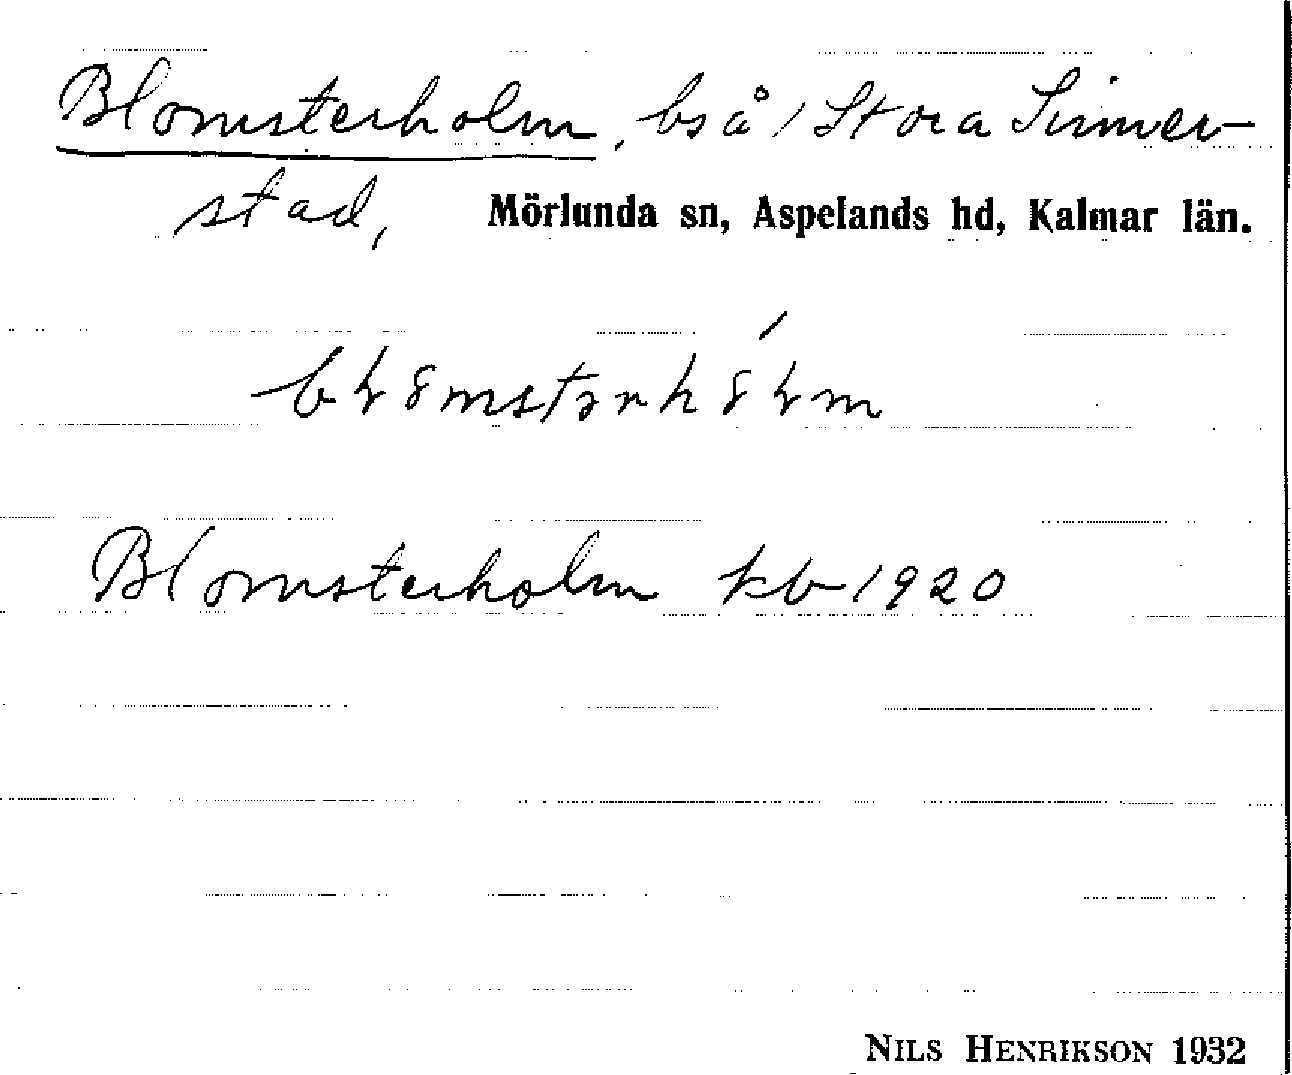 Blomsterholm, bs å / Stora Sinner-
stad, Mörlunda sn, Aspelands hd, Kalmar län.
Blomsterholm kb 1920
NILS HENRIKSON 1932